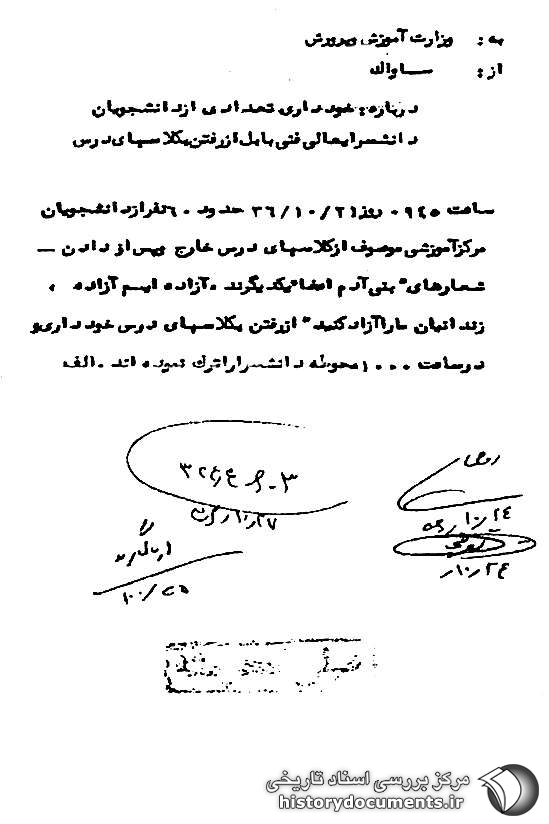 به : وزارت آموزش وپرورش
از : ساواك
درباره : خودداری تعدادی ازدانشجویان
دانشسرایعالی فنی بابل ازرفتن بكلاسهای درس
ساعت ۰۹۴۵ روز ۳۶/۱۰/۲۱ حدود ۶۰ نفرازدانشجویان
مركزآموزشی موصوف ازكلاسهای درس خارج وپس از دادن —
شعارهای " بنی آدم اعضا یكدیگرند ، آزاده ایم آزاده ،
زندانیان ماراآزادكنید " ازرفتن بكلاسهای درس خودداری و
درساعت ۱۰۰۰ محوطه دانشسراراترك نموده اند . الف
امضا
۱۰/۲۴
۱۰/۲۴
مركز بررسی اسناد تاریخی
historydocuments.ir